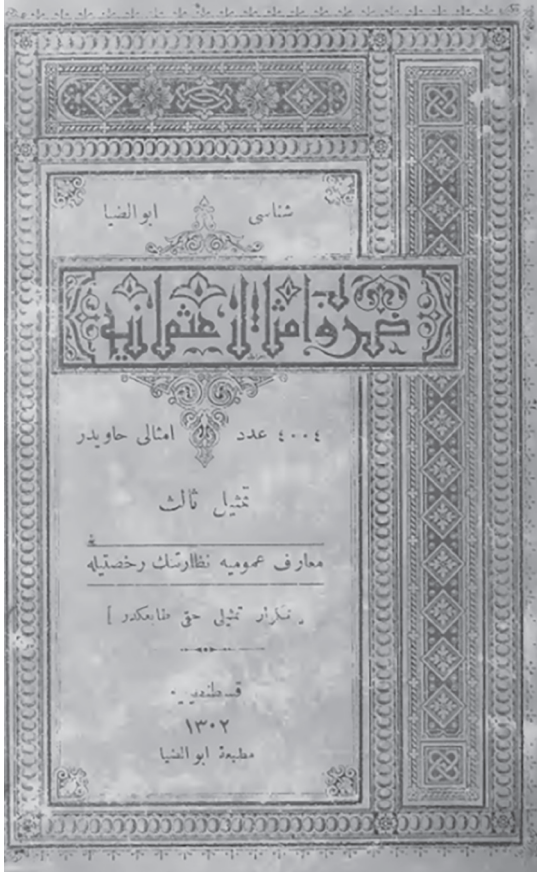 شناسی ابوالضیا
ضروب امثال عثمانیه
٤٠٠٤ عدد امثالی حاویدر
تمثیل ثالث
معارف عمومیه نظارتنك رخصتیله
[ تكرار تمثیلی حق طابعكدر ]
قسطنطینیه
١٣٠٢
مطبعهٔ ابوالضیا